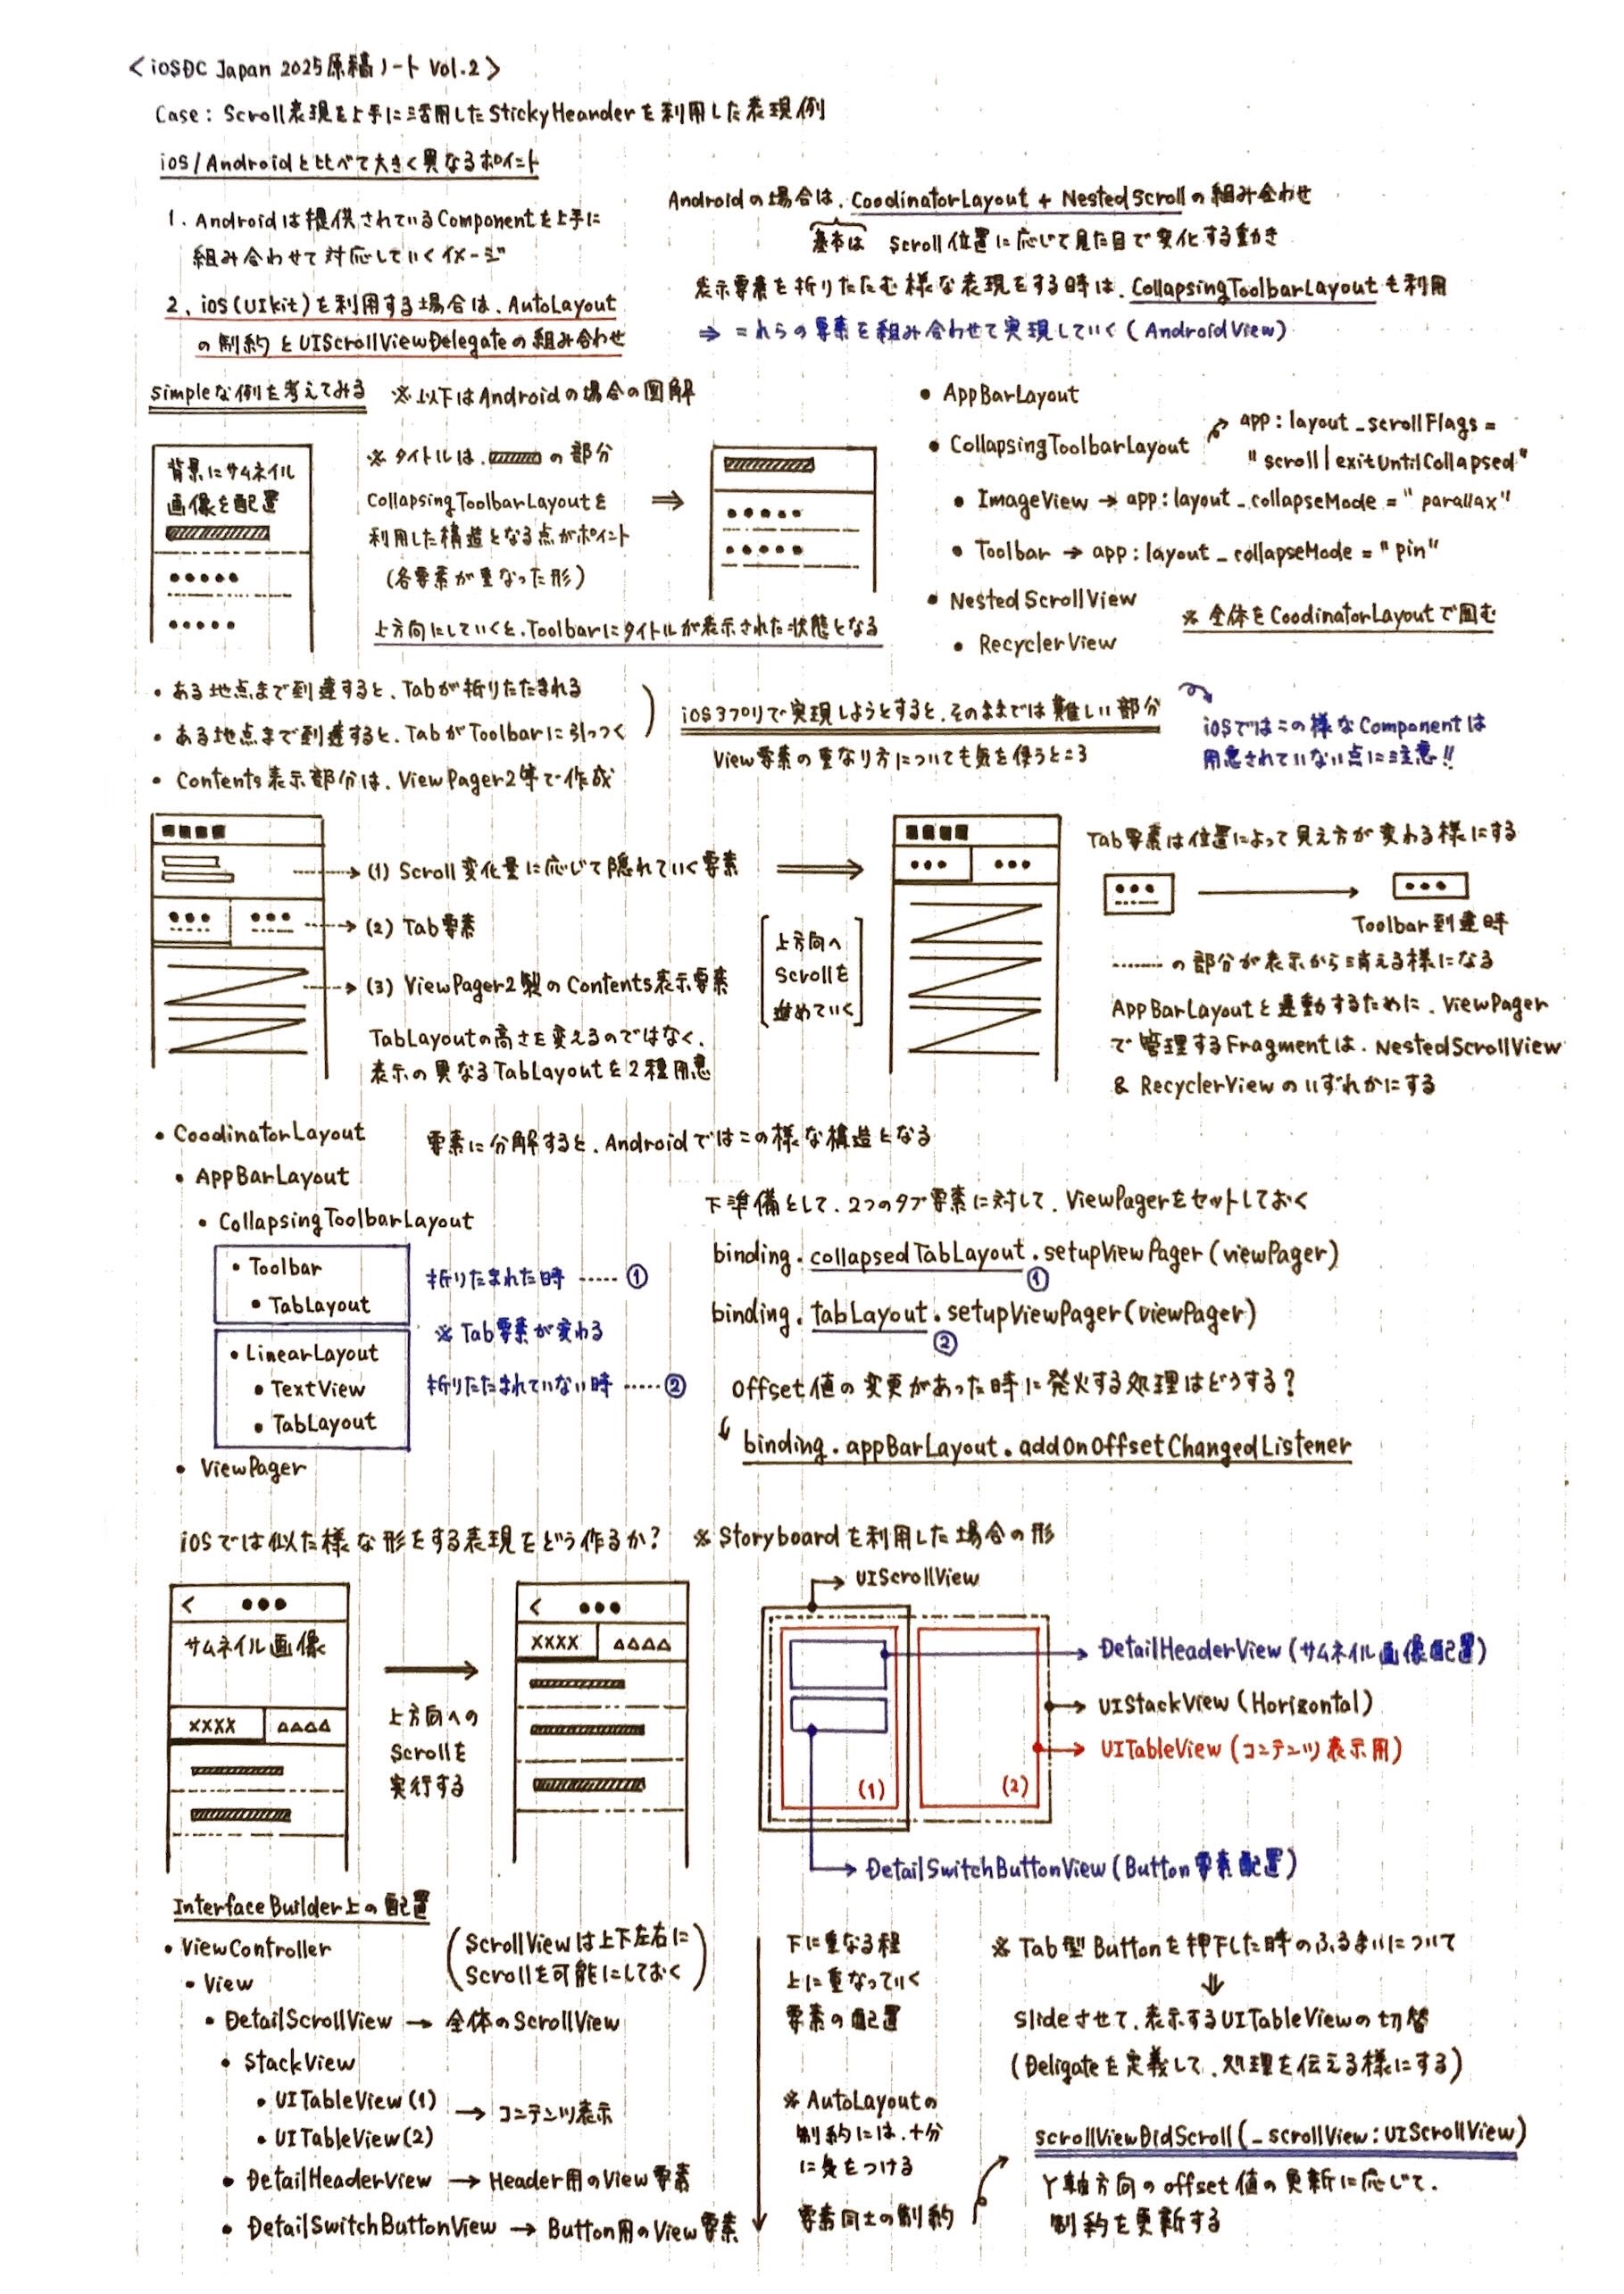 <iOSDC Japan 2025原稿ノート Vol.2>
Case: Scroll表現を上手に活用したStickyHeanderを利用した表現例
iOS/Androidと比べて大きく異なるポイント
1. Androidは提供されているComponentを上手に
組み合わせて対応していくイメージ
2. iOS(UIKit)を利用する場合は、AutoLayout
の制約とUIScrollViewDelegateの組み合わせ
Androidの場合は、CoodinatorLayout + NestedScrollの組み合わせ
基本は Scroll位置に応じて見た目で変化する動き
表示要素を折りたたむ様な表現をする時は、CollapsingToolbarLayoutも利用
⇒ これらの要素を組み合わせて実現していく(AndroidView)
Simpleな例を考えてみる ※以下はAndroidの場合の図解
背景にサムネイル
画像を配置
※タイトルは、の部分
CollapsingToolbarLayoutを
利用した構造となる点がポイント
(各要素が重なった形)
上方向にしていくと、Toolbarにタイトルが表示された状態となる
• AppBarLayout
• CollapsingToolbarLayout
app:layout_scrollFlags =
"scroll|exitUntilCollapsed"
• ImageView → app:layout_collapseMode = "parallax"
• Toolbar → app:layout_collapseMode = "pin"
• NestedScrollView
※全体をCoodinatorLayoutで囲む
• RecyclerView
• ある地点まで到達すると、Tabが折りたたまれる
• ある地点まで到達すると、TabがToolbarに引っつく
• Contents表示部分は、ViewPager2等で作成
iOSアプリで実現しようとすると、そのままでは難しい部分
View要素の重なり方についても気を使うところ
iOSではこの様なComponentは
用意されていない点に注意!!
(1) Scroll変化量に応じて隠れていく要素
(2) Tab要素
(3) ViewPager2製のContents表示要素
TabLayoutの高さを変えるのではなく、
表示の異なるTabLayoutを2種用意
上方向へ
Scrollを
進めていく
Tab要素は位置によって見え方が変わる様にする
Toolbar到達時
の部分が表示から消える様になる
AppBarLayoutと連動するために、ViewPager
で管理するFragmentは、NestedScrollView
& RecyclerViewのいずれかにする
• CoodinatorLayout
要素に分解すると、Androidではこの様な構造となる
• AppBarLayout
• CollapsingToolbarLayout
• Toolbar
• TabLayout
折りたまれた時 …… ①
※Tab要素が変わる
• LinearLayout
• TextView
• TabLayout
折りたたまれていない時 …… ②
• ViewPager
下準備として、2つのタブ要素に対して、ViewPagerをセットしておく
binding.collapsedTabLayout.setupViewPager(viewPager)
①
binding.tabLayout.setupViewPager(viewPager)
②
Offset値の変更があった時に発火する処理はどうする?
binding.appBarLayout.addOnOffsetChangedListener
iOSでは似た様な形をする表現をどう作るか? ※Storyboardを利用した場合の形
< •••
サムネイル画像
XXXX △△△△
上方向への
Scrollを
実行する
< •••
XXXX △△△△
UIScrollView
DetailHeaderView(サムネイル画像配置)
UIStackView(Horizontal)
UITableView(コンテンツ表示用)
(1)
(2)
DetailSwitchButtonView(Button要素配置)
InterfaceBuilder上の配置
• ViewController
(ScrollViewは上下左右に
Scrollを可能にしておく)
• View
• DetailScrollView → 全体のScrollView
• StackView
• UITableView(1)
• UITableView(2)
→ コンテンツ表示
• DetailHeaderView → Header用のView要素
• DetailSwitchButtonView → Button用のView要素
下に重なる程
上に重なっていく
要素の配置
※AutoLayoutの
制約には、十分
に気をつける
要素同士の制約
※Tab型Buttonを押下した時のふるまいについて
⇓
Slideさせて、表示するUITableViewの切替
(Deligateを定義して、処理を伝える様にする)
scrollViewDidScroll(_ scrollView: UIScrollView)
Y軸方向のoffset値の更新に応じて、
制約を更新する